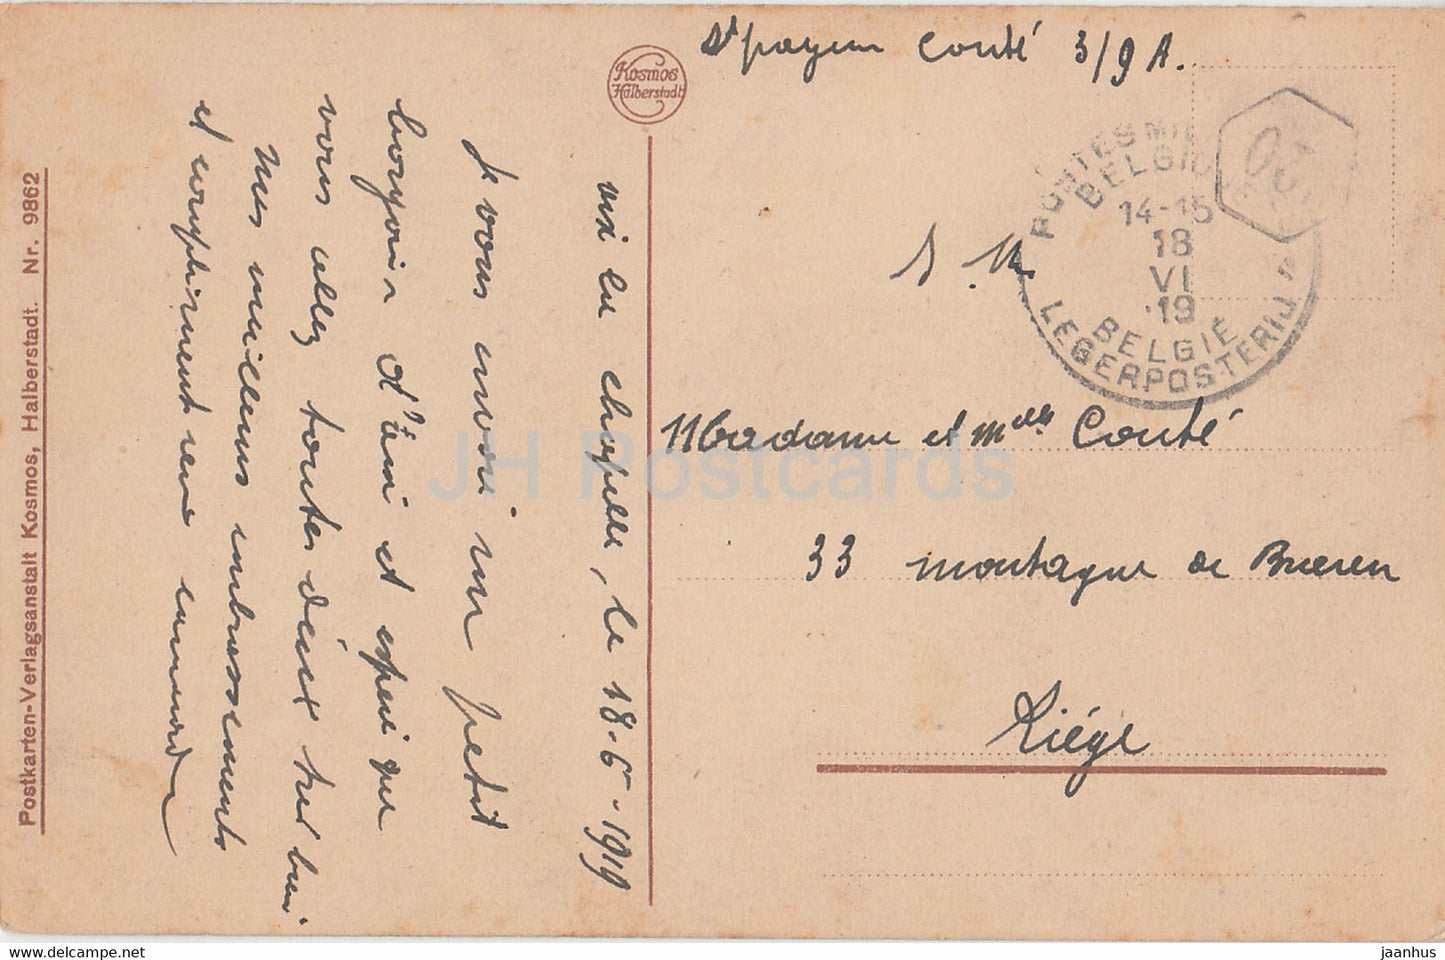 Sᵗ payeur Conté 3/9 A.
Kosmos
Halberstadt
POSTES MIL
BELGIQ
14-15
18
VI
19
BELGIË
LEGERPOSTERIJ
20
S. M.
Madame et Melles Conté
33 montagne de Bueren
Liége
aix la chapelle, le 18-6-1919
Je vous envoi un petit
bonjour d'ici et espère que
vous allez toutes deux très bien
Mes meilleurs embrassements
et compliment aux
Postkarten-Verlagsanstalt Kosmos, Halberstadt. Nr. 9862
JH Postcards
https://www.delcampe.net
jaanhus